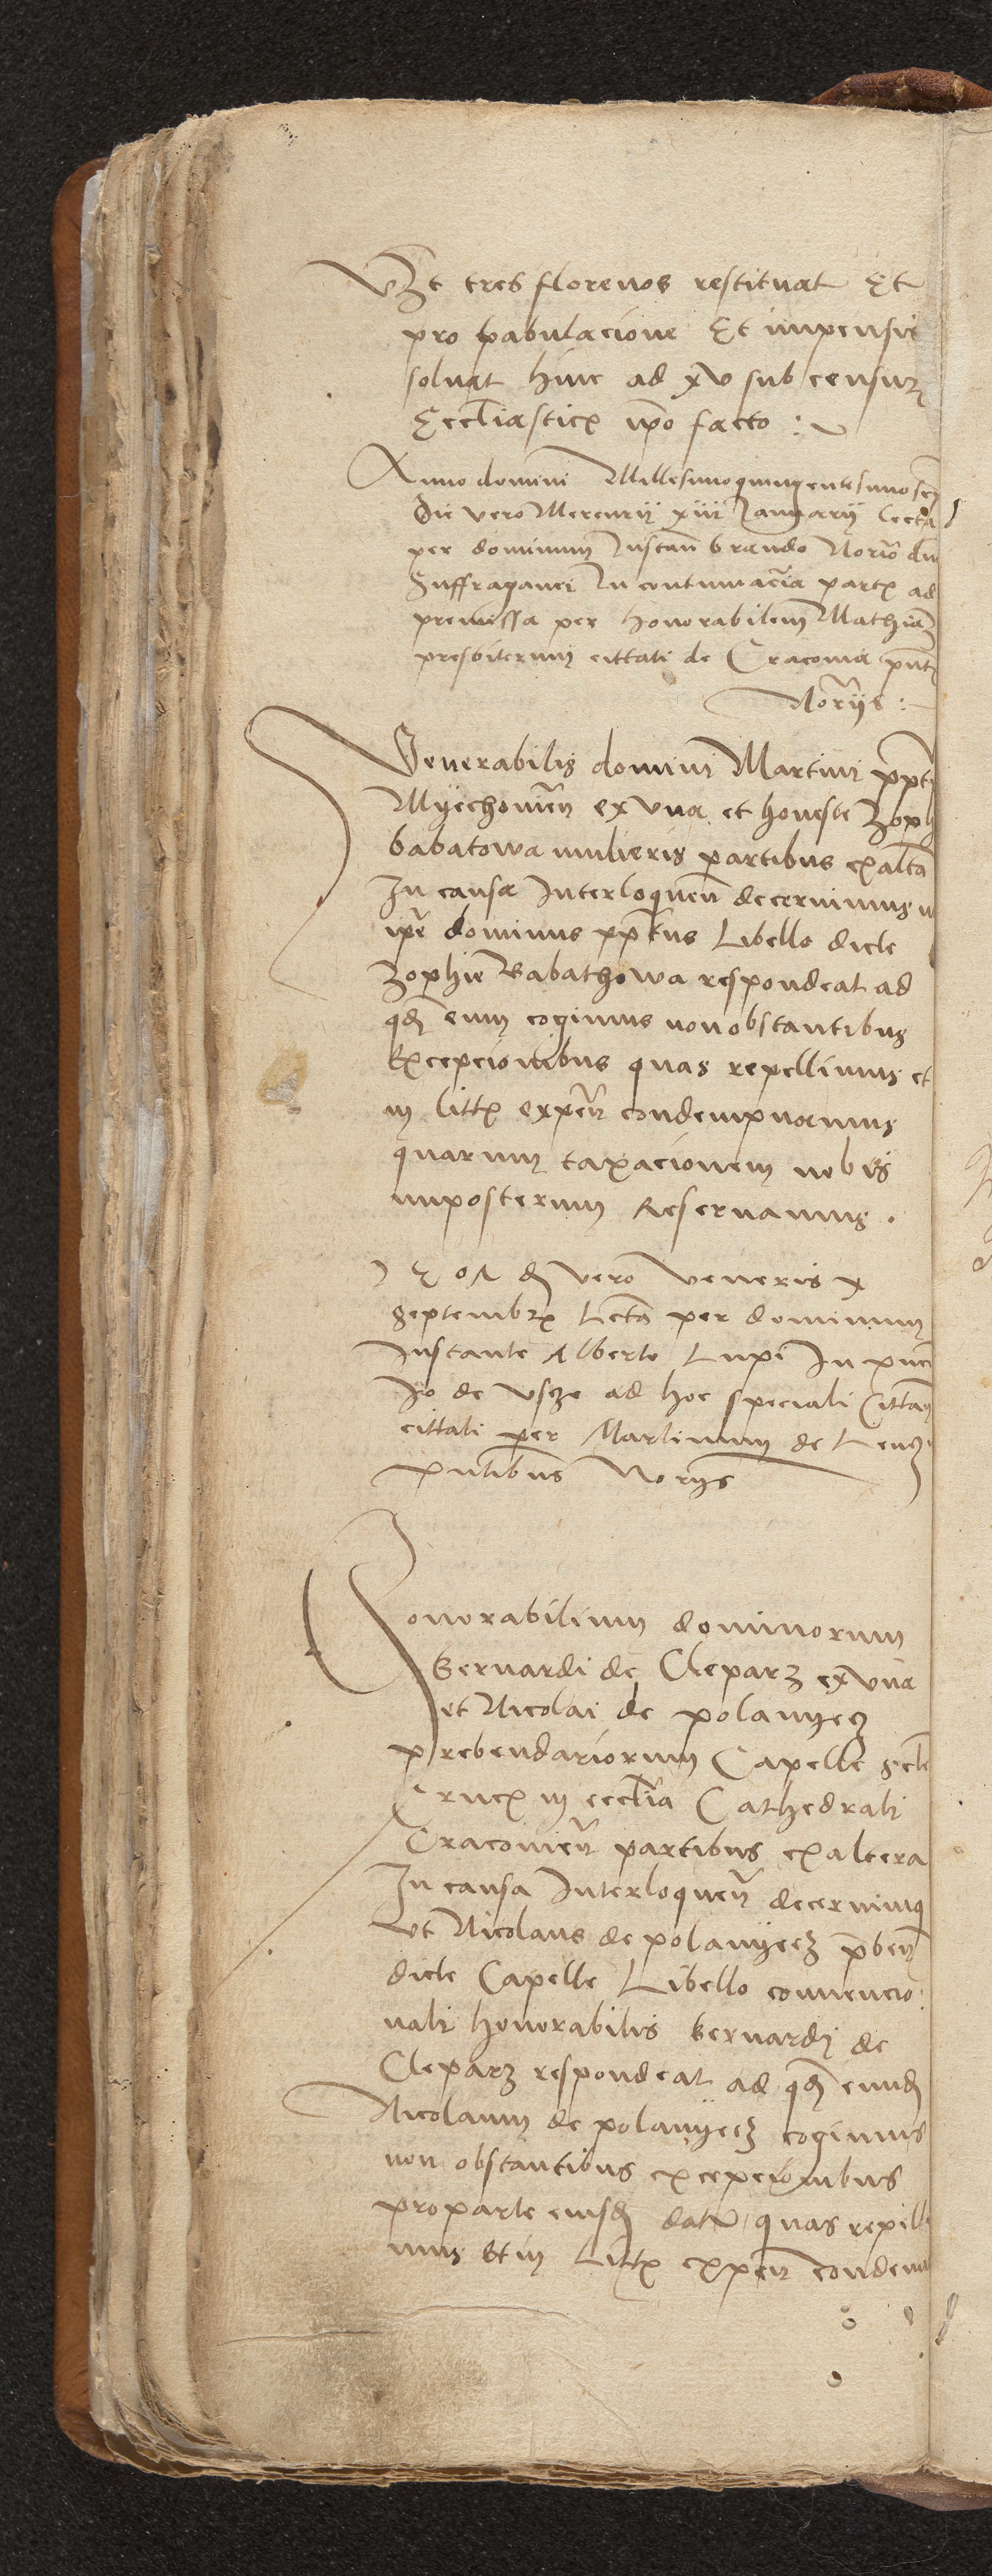 Vt tres florenos restituat Et
pro pabulacione Et impensis
soluat hinc ad xv sub censur
Eccliasticis ipo facto :
Anno domini Millesimoquingentesimo
Die vero Mercurij xiii Januarij lecta
per dominum Instan brando Norio dni
Suffraganei In contumacia partis ad
premissa per honorabilem Mathiam
presbiterum cittati de Cracouia pnt
Norijs :
Venerabilis domini Martini ppti
Myechouien ex vna et honeste Zoph
babatowa mulieris partibus exalta
In causa Interloquen decernimus
ipe dominus pptus Libello dicte
Zophie Babathowa respondeat ad
qd eum cogimus nonobstantibus
Excepcionibus quas repellimus et
in littis expen condempnamus
quarum taxacionem nobis
imposterum Reseruamus .
die vero Veneris x
Septembris Lecta per dominum
Instante Alberto Lupi In pnci
Jo de Vsze ad hoc speciali Cittam
cittati per Martinum de
pntibus Norijs
Honorabilium dominorum
Bernardi de Cleparz ex vna
et Nicolai de polanyecz
prebendariorum Capelle scte
Crucis in ecclia Cathedrali
Cracouien partibus exaltera
In causa Interloquen decernimus
Vt Nicolaus de polanyecz pben
dicte Capelle Libello conuencio
nali honorabilis Bernardi de
Cleparz respondeat ad qd eund
Nicolaum de polanyecz cogimus
non obstantibus excepcionibus
proparte eiusd datis quas repelli
mus Et in Littis expen condem